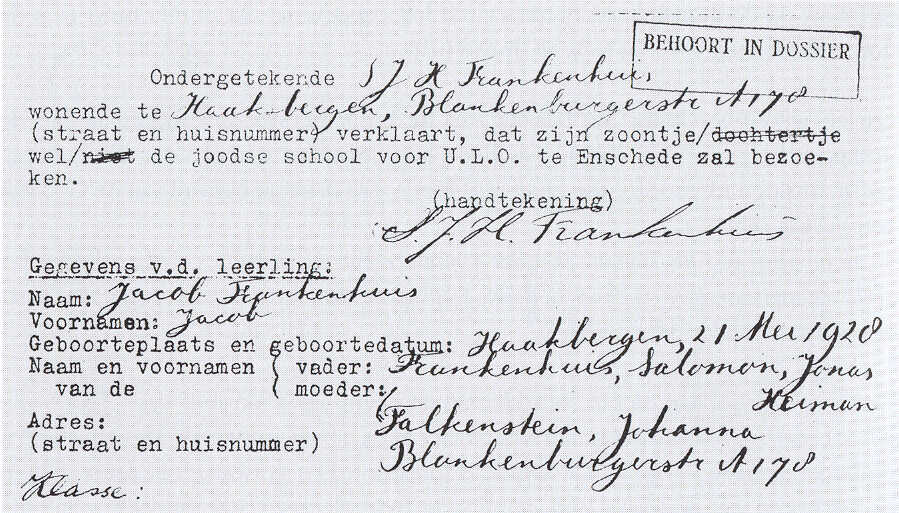 BEHOORT IN DOSSIER
Ondergetekende S J H Frankenhuis
wonende te Haaksbergen, Blankenburgerstr A178
(straat en huisnummer) verklaart, dat zijn zoontje/dochtertje
wel/niet de joodse school voor U.L.O. te Enschede zal bezoe-
ken.
(handtekening)
S. J. H. Frankenhuis
Gegevens v.d. leerling:
Naam: Jacob Frankenhuis
Voornamen: Jacob
Geboorteplaats en geboortedatum: Haakbergen, 21 Mei 1928
Naam en voornamen ( vader: Frankenhuis, Salomon, Jonas
Heiman
van de ( moeder:
Falkenstein, Johanna
Adres:
(straat en huisnummer) Blankenburgerstr A178
Klasse: